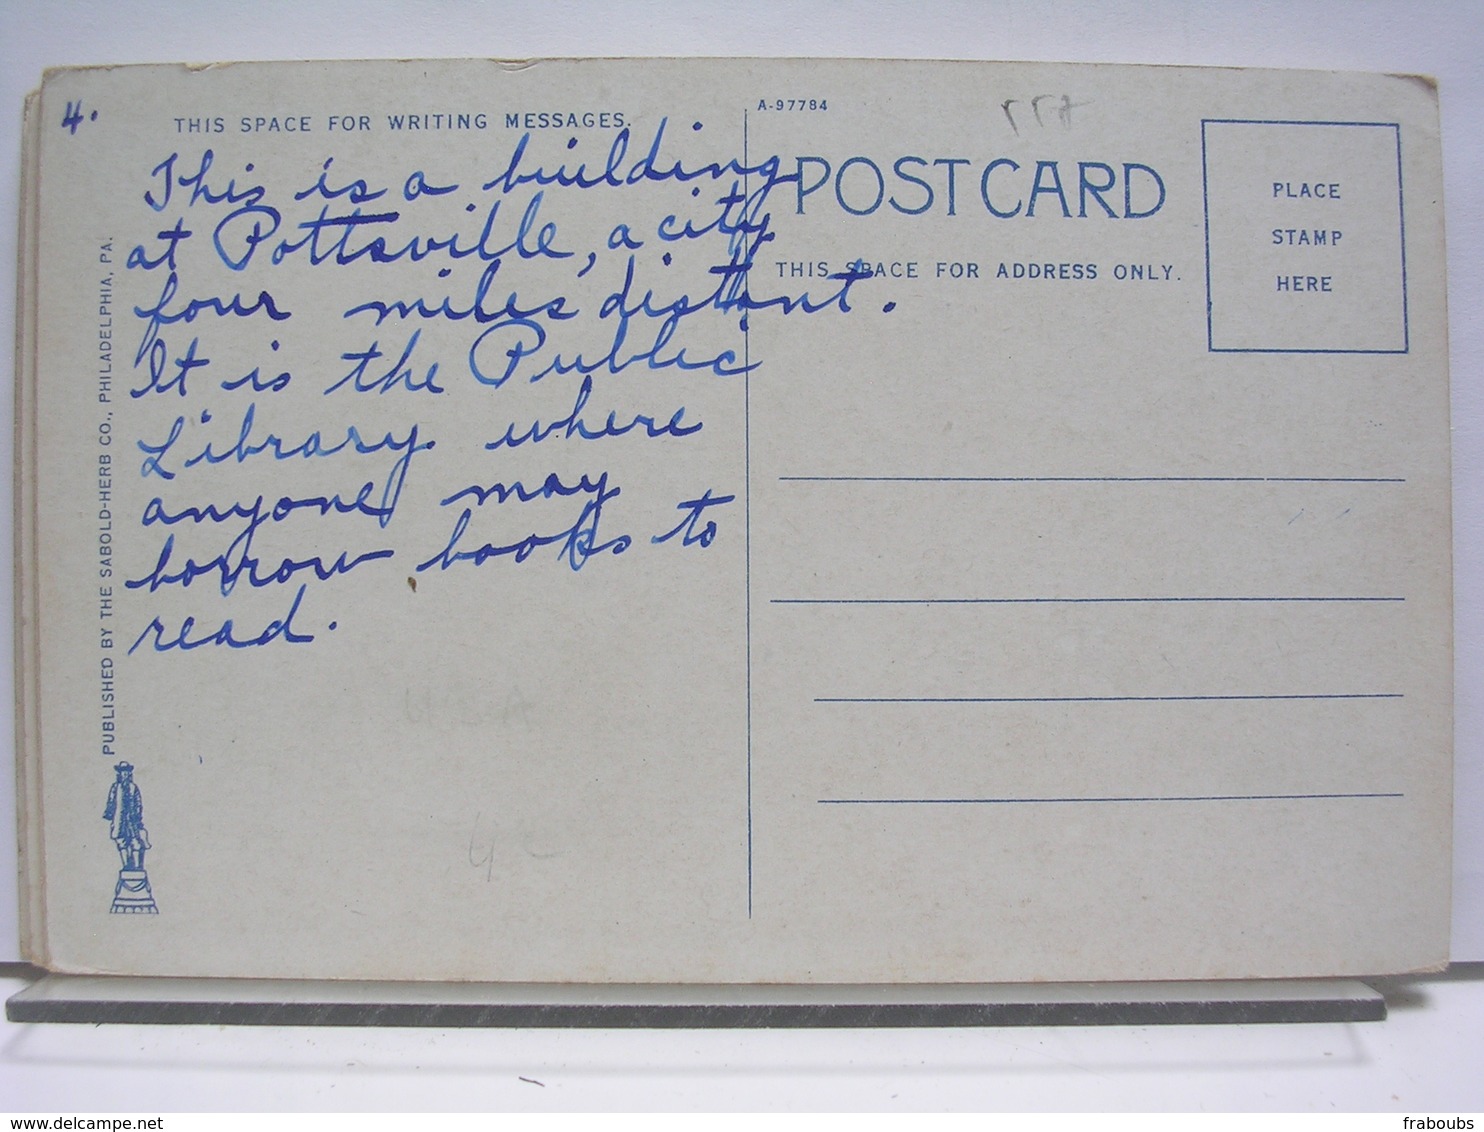 4.
THIS SPACE FOR WRITING MESSAGES.
This is a building
at Pottsville, a city
four miles distant.
It is the Public
Library where
anyone may
borrow books to
read.
PUBLISHED BY THE SABOLD-HERB CO., PHILADELPHIA, PA.
U.S.A
A-97784
POST CARD
THIS SPACE FOR ADDRESS ONLY.
PLACE
STAMP
HERE
delcampe.net
fraboubs